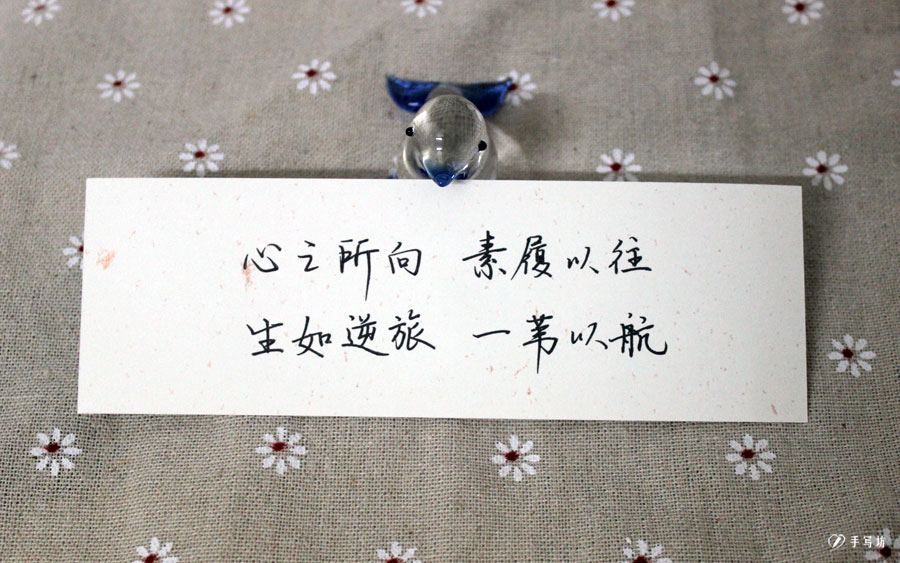 心之所向 素履以往
生如逆旅 一苇以航
手写坊